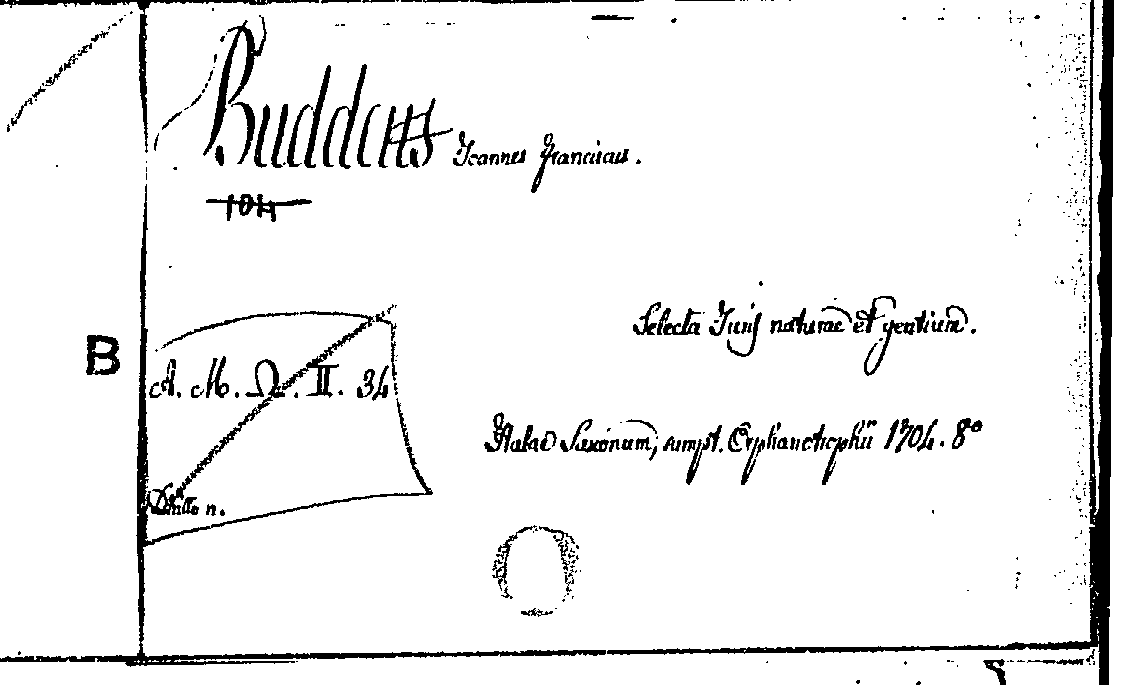 Buddeus Joannes Franciscus.
1704
Selecta Juris naturae et gentium.
B
A. M. Ω. II. 34
Halae Saxonum, sumpt. Orphanotrophii 1704. 8°
n.
O